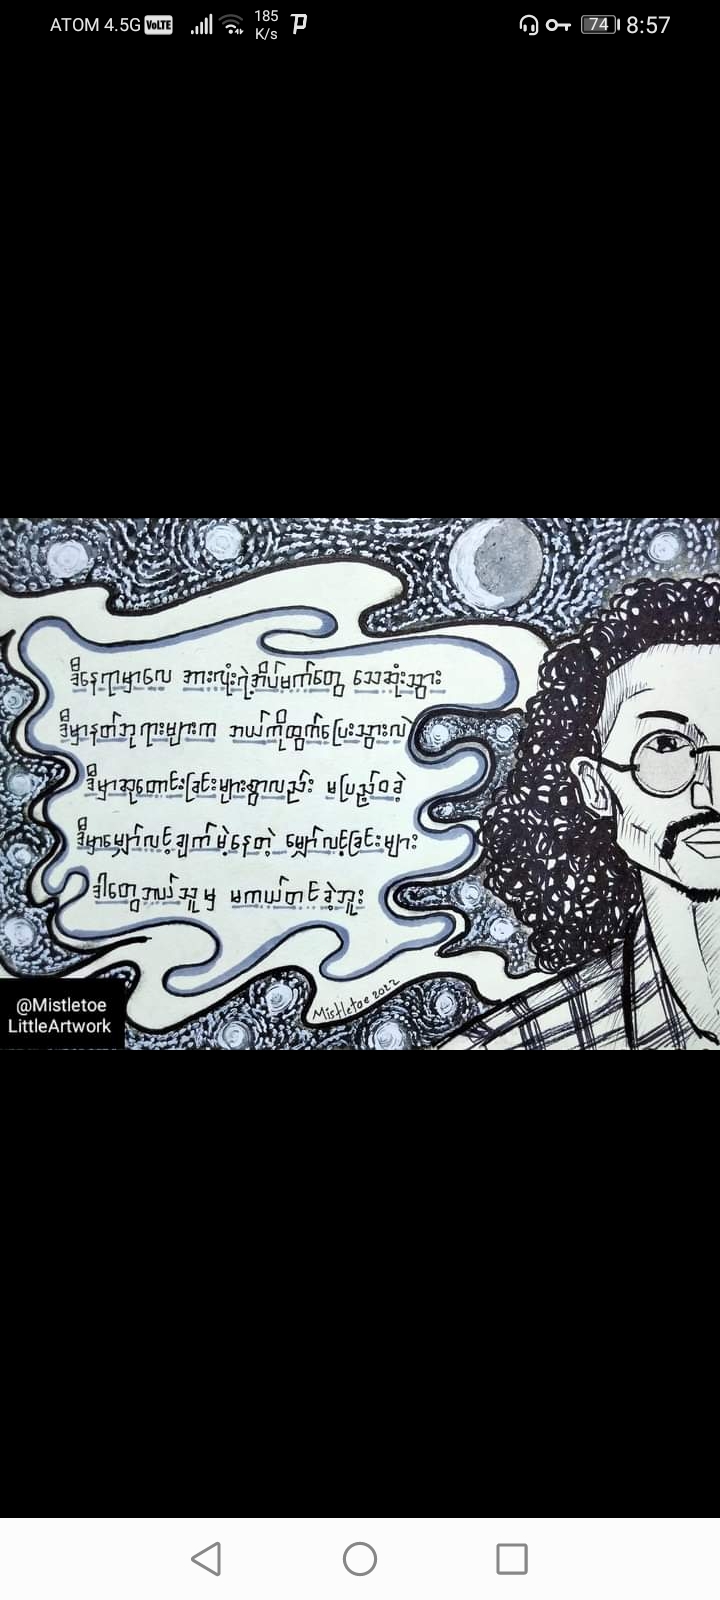 ATOM 4.5G VoLTE 185 K/s 74 8:57
ဒီနေရာမှာလေ အားလုံးရဲ့အိပ်မက်တွေ သေဆုံးသွား
ဒီမှာနတ်ဘုရားများက ဘယ်ကိုထွက်ပြေးသွားလဲ
ဒီမှာဆုတောင်းခြင်းများစွာလည်း မပြည့်ဝခဲ့
ဒီမှာမျှော်လင့်ချက်မဲ့နေတဲ့ မျှော်လင့်ခြင်းများ
ဒါတွေဘယ်သူမှ မကယ်တင်ခဲ့ဘူး
Mistletoe 2022
@Mistletoe
LittleArtwork